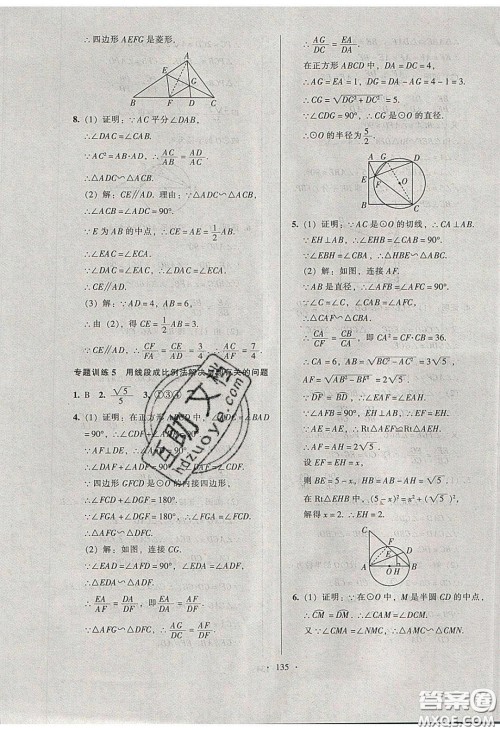 ∴四边形 AEFG 是菱形.
A
E
G
B F D C
8. (1) 证明：∵AC 平分∠DAB，
∴∠DAC=∠CAB.
∵AC²=AB·AD，∴AC/AB=AD/AC.
∴△ADC∽△ACB.
(2) 解：CE∥AD. 理由：∵△ADC∽△ACB，
∴∠ACB=∠ADC=90°.
∵E 为 AB 的中点，∴CE=AE=1/2 AB.
∴∠EAC=∠ECA.
∵∠DAC=∠EAC，∴∠DAC=∠ECA.
∴CE∥AD.
(3) 解：∵AD=4，AB=6，
∴由 (2)，得 CE=1/2 AB=3.
∵CE∥AD，∴CF/FA=CE/DA=3/4，∴AC/AF=7/4
专题训练 5 用线段成比例法解决
有关的问题
1. B 2. √5/5 3. ①③④
4. (1) 证明：∵在正方形 ABCD 中，
=∠BAD
=90°，∴∠
∵AF⊥DE，∴∠
=90°.
∴∠ADF+∠DAF=90°，∴
∵四边形 GFCD 是⊙O 的内接四边形，
∴∠FCD+∠DGF=180°.
∵∠FGA+∠DGF=180°，∴∠FGA=∠FCD.
∴△AFG∽△DFC.
(2) 解：如图，连接 CG.
∵∠EAD=∠AFD=90°，∠EDA=∠ADF，
∴△EDA∽△ADF.
∴EA/AF=DA/DF，即EA/DA=AF/DF.
∵△AFG∽△DFC，∴AG/DC=AF/DF.
∴AG/DC=EA/DA.
在正方形 ABCD 中，DA=DC=4，
∴AG=EA=1，DG=DA-AG=4-1=3.
∴CG=√DG²+DC²=5.
∵∠CDG=90°，∴CG 是⊙O 的直径.
∴⊙O 的半径为5/2.
A G D
E F
O
B C
5. (1) 证明：∵AC 是⊙O 的切线，∴CA⊥AB.
∵EH⊥AB，∴∠EHB=∠CAB=90°.
∵∠EBH=∠CBA，∴△HBE∽△ABC.
(2) 解：如图，连接 AF.
∵AB 是直径，∴∠AFB=90°.
∵∠AFC=∠CAB=90°，∠C=∠C，∴△CAF∽△CBA.
∴CA²=CF·CB=36.
∴CA=6，AB=√BC²-AC²=3√5，
AF=√AC²-CF²=2√5.
∵D̂F=B̂D，∴∠EAF=∠EAH.
∵EF⊥AF，EH⊥AB，∴EF=EH.
∵AE=AE，∴Rt△AEF≌Rt△AEH.
∴AF=AH=2√5.
设 EF=EH=x，
则 BE=5-x，BH=AB-AH=√5.
在 Rt△EHB 中，(5-x)²=x²+(√5)²，
解得 x=2. ∴EH=2.
C
F
E D
A O H B
6. (1) 证明：∵在⊙O 中，M 是半圆 CD 的中点，
∴C̑M=D̑M，∴∠CAM=∠DCM.
又∵∠CMA=∠NMC，∴△AMC∽△CMN.
· 135 ·
自助文库
hdzuoye.com
答案圈
MXQE.COM